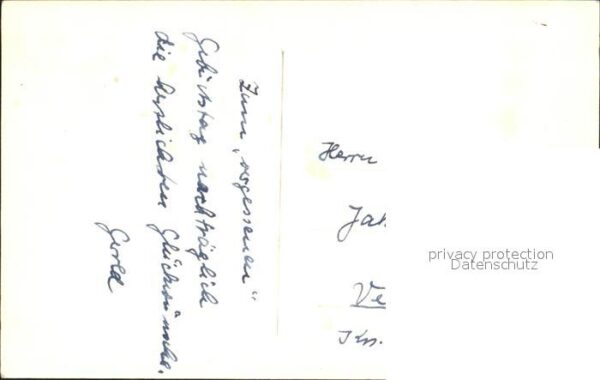 Zum „vergessenen“
Geburtstag nachträglich
die herzlichsten Glückwünsche.
Gerold
Herrn
Jak
Ve
Krs.
privacy protection
Datenschutz